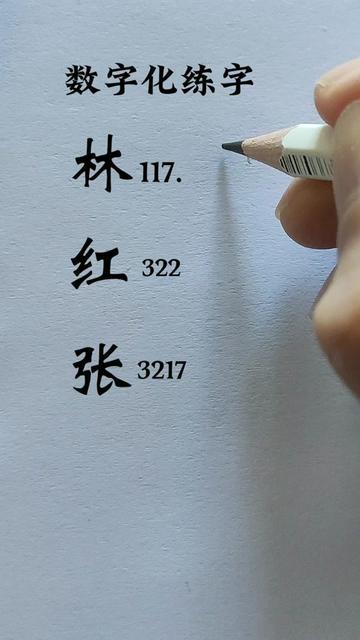 数字化练字
林 117.
红 322
张 3217